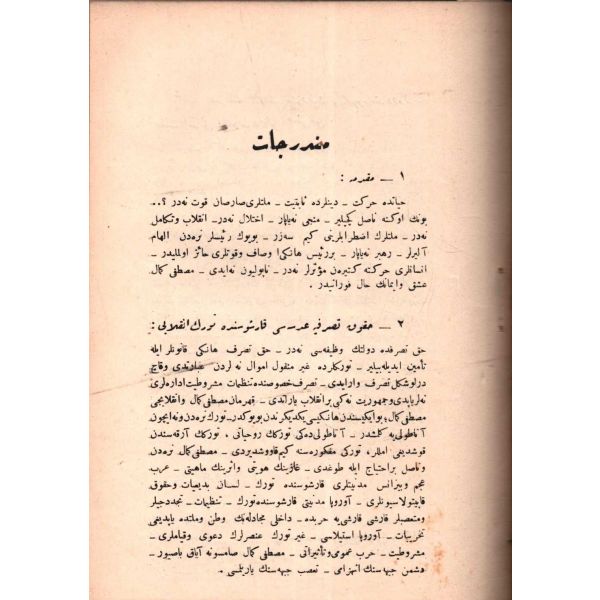 مندرجات
١ — مقدمه :
حیاتده حرکت — دینلرده ثابتیت — ملتلری صارصان قوت نه‌در ؟..
بونك اوكنه ناصل كچیلیر — منجی نه‌یاپار — اختلال نه‌در — انقلاب وتكامل
نه‌در — ملتلرك اضطرابلرینی كیم سه‌زر — بویوك رئیسلر نره‌دن الهام
آلیرلر — رهبر نه‌یاپار — بررئیس هانكی اوصاف وقوتلری حائز اولملیدر —
انسانلری حركته كتیره‌ن مؤثرلر نه‌در — ناپولیون نه‌ایدی — مصطفی كمال
عشق وایمانك حال فورانیدر .
٢ — حقوق تصرفیه عدرسی قارشوسنده تورك انقلابی :
حق تصرفده دولتك وظیفه‌سی نه‌در — حق تصرف هانكی قانونلر ایله
تأمین ایدیله‌بیلیر — توركلرده غیر منقول اموال نه لردن عبارتدی وقاچ
درلوشكل تصرف وارایدی — تصرف خصوصنده تنظیمات مشروطیت اداره‌لری
نه‌لریاپدی وجمهوریت نه‌كی برانقلاب یاراتدی — قهرمان مصطفی كمال وانقلابجی
مصطفی كمال؛ بوایكیسندن هانكیسی یكدیكرندن بویوكدر — تورك نره‌دن ونه‌ایچون
آناطولی‌یه كلشدر — آناطولی‌ده‌كی توركك روحیاتی — توركك آرقه‌سندن
قوشدیغی امللر — توركی مفكوره‌سنه كیم قاووشدیردی — مصطفی كمال نره‌دن
وناصل براحتیاج ایله طوغدی — غازینك هویتی واثرینك ماهیتی — عرب
عجم وبیزانس مدنیتلری قارشوسنده تورك — لسان بدیعیات وحقوق
قاپیتولاسیونلری — آوروپا مدنیتی قارشوسنده تورك — تنظیمات — تجددجیلر
ومتعصبلر قارشی قارشی‌یه حربده — داخلی مجادله‌نك وطن وملتده یاپدیغی
تخریبات — آوروپا استیلاسی — غیر تورك عنصرلرك دعوی وقیاملری —
مشروطیت — حرب عمومی وتأثیراتی — مصطفی كمال صامسونه آیاق باصیور —
دشمن جبهه‌سنك انهزامی — تعصب جبهه‌سنك یاریلسی .